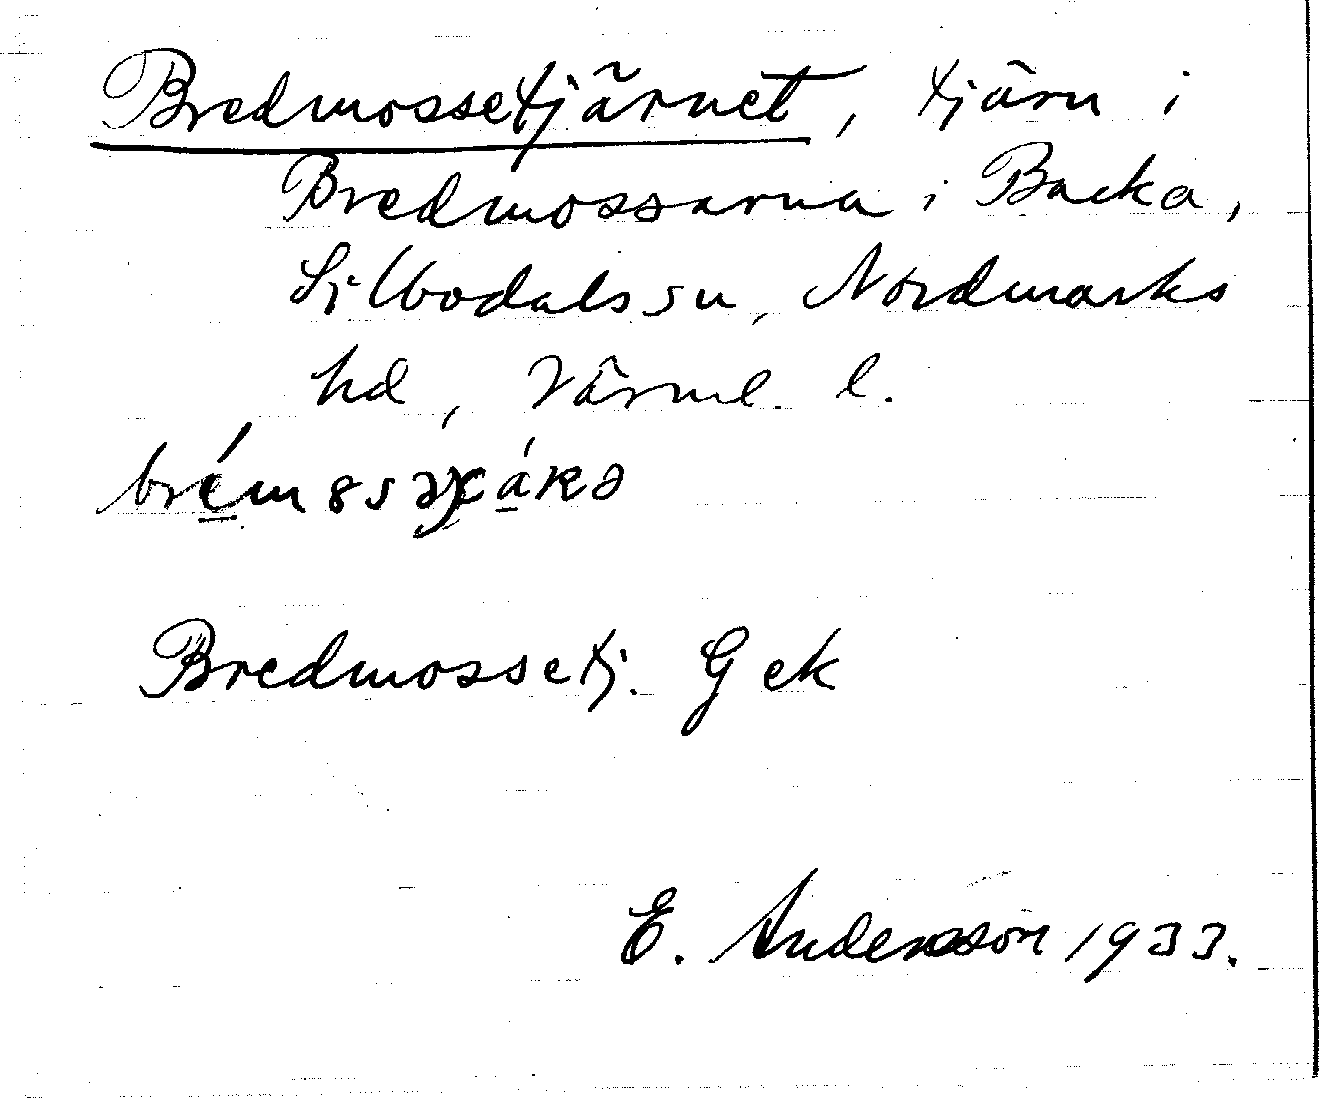 Bredmossetjärnet, tjärn i
Bredmossarna i Backa,
Silbodals sn, Nordmarks
hd, Värml. l.
Bredmossetj. Gek
E. Andersson 1933.